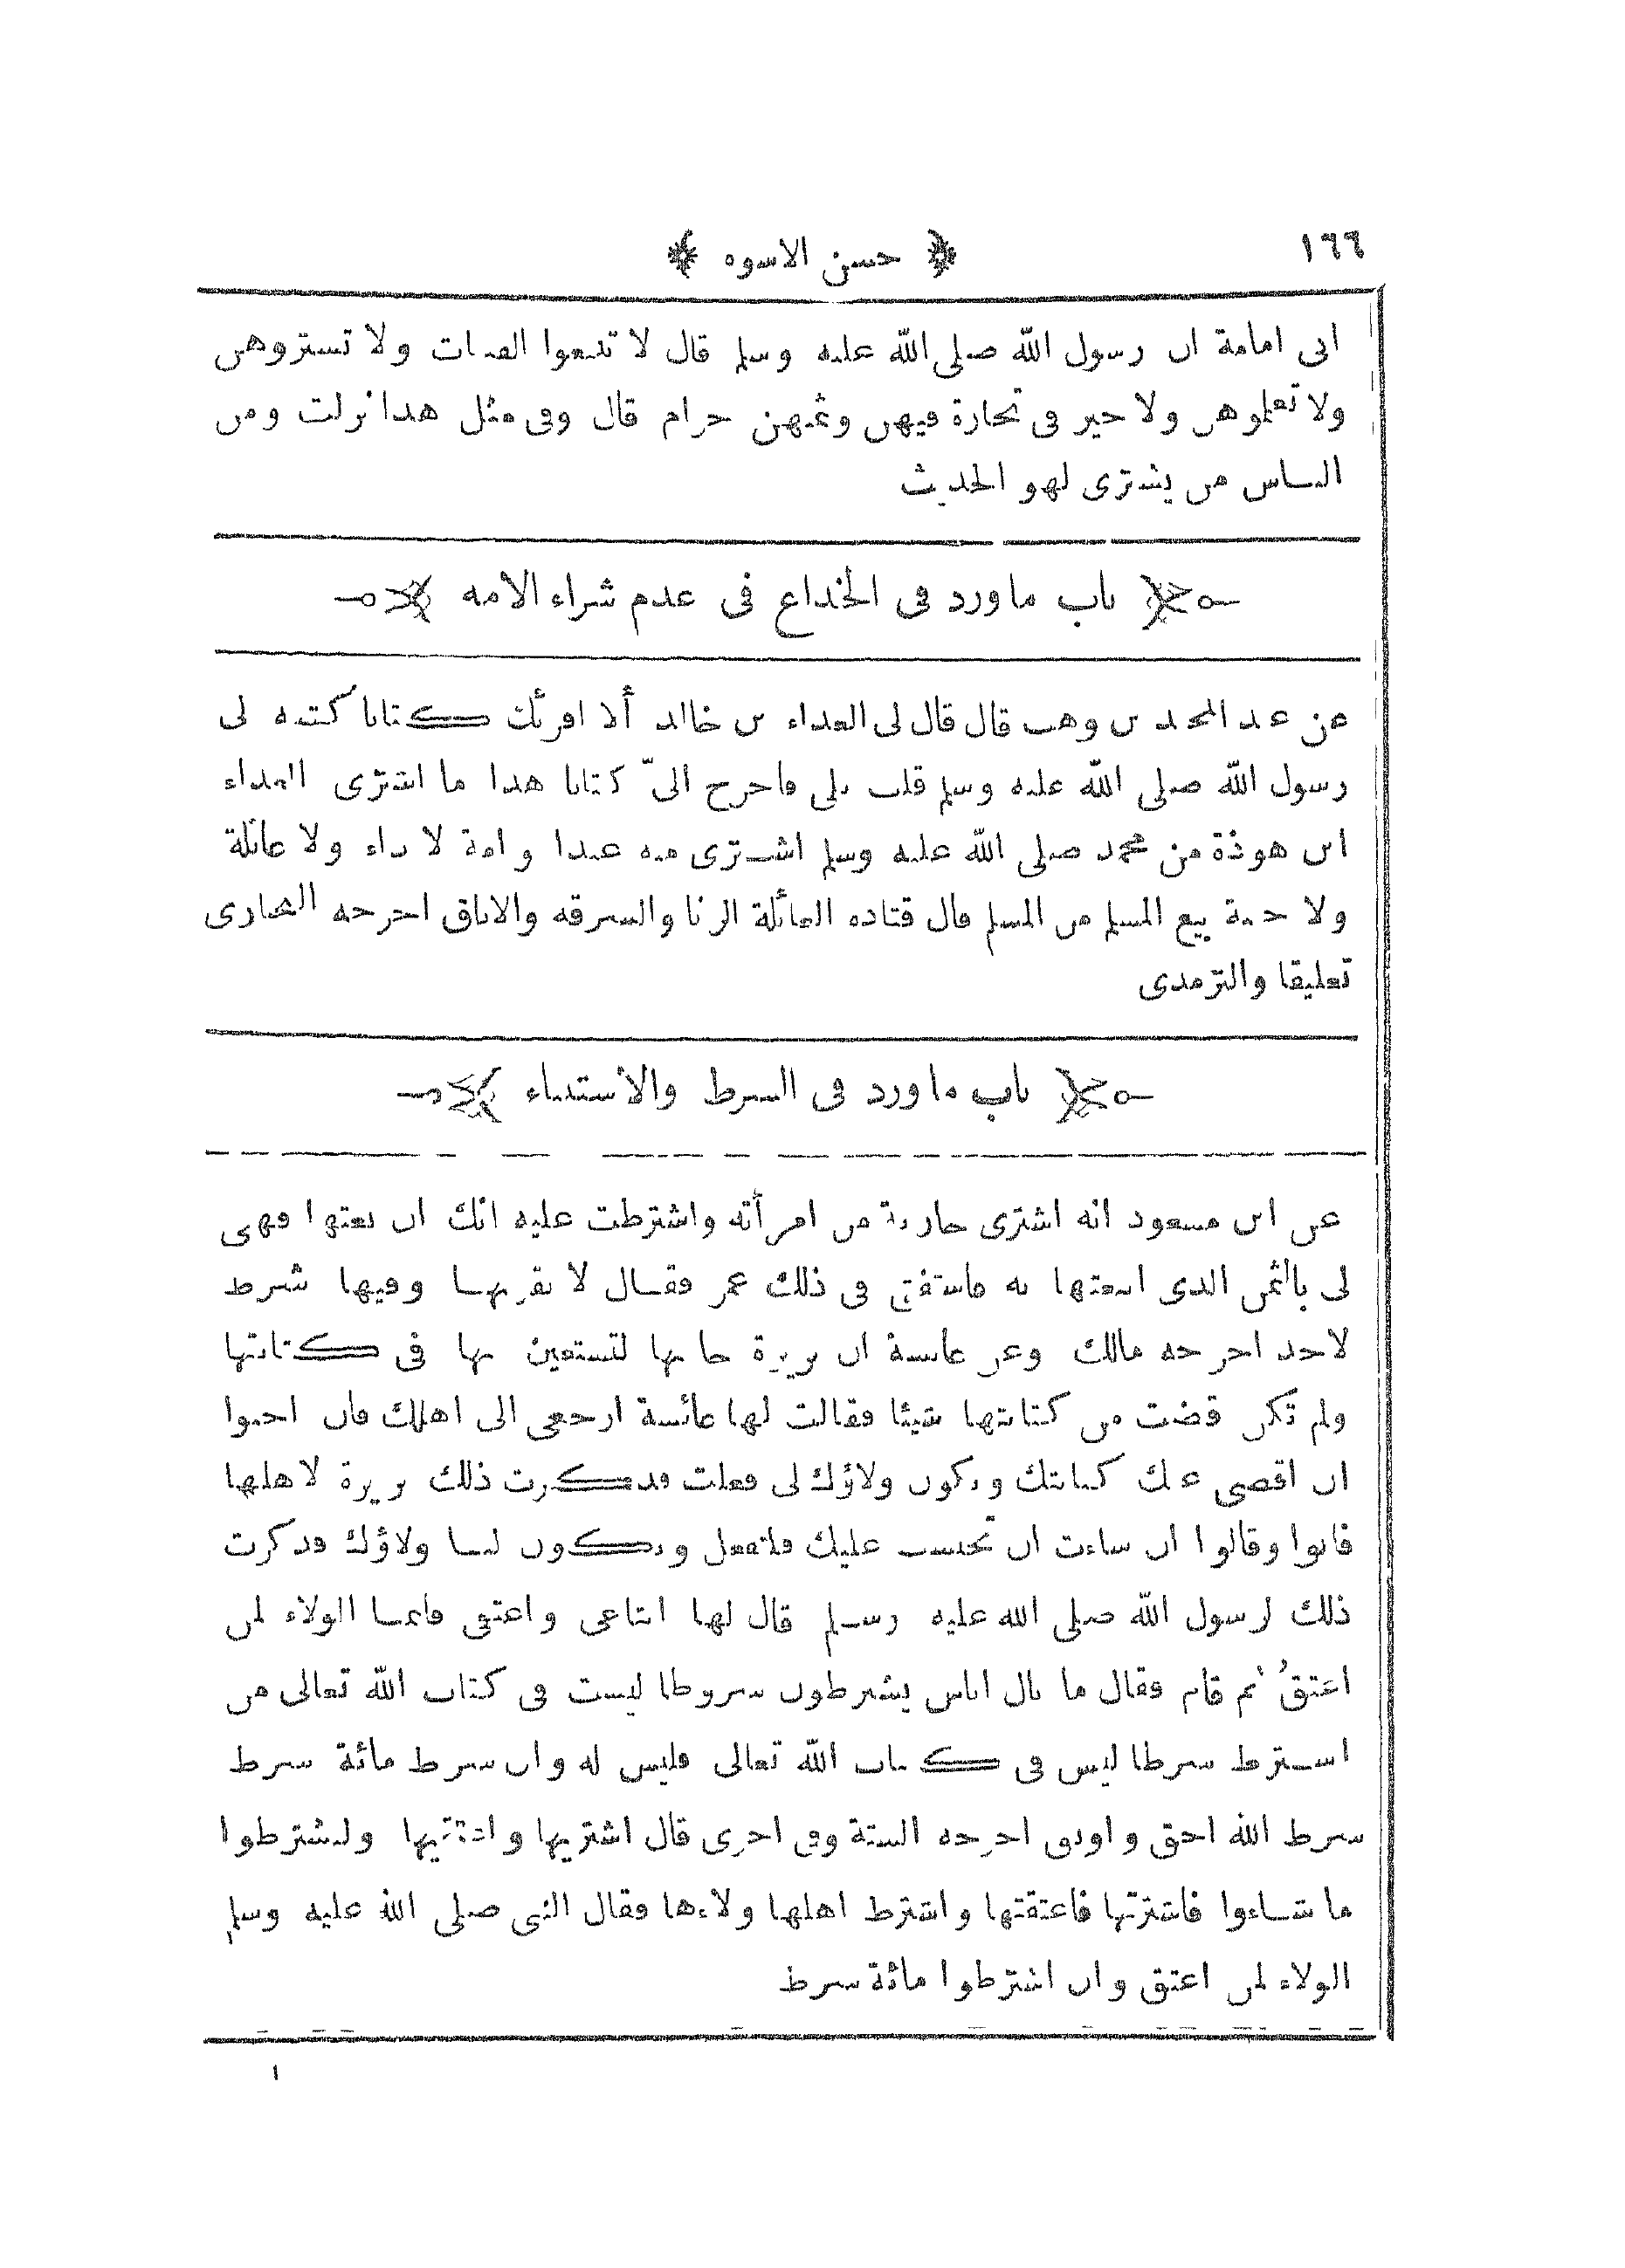 ١٦٦
حسن الاسوه
ابى امامة ان رسول الله صلى الله عليه وسلم قال لا تبيعوا القينات ولا تشتروهن
ولا تعلموهن ولا خير فى تجارة فيهن وثمنهن حرام قال وفى مثل هذا نزلت ومن
الناس من يشترى لهو الحديث
باب ما ورد فى الخداع فى عدم شراء الامه
عن عبد المجيد بن وهب قال قال لى العداء بن خالد ألا اقرئك كتابا كتبه لى
رسول الله صلى الله عليه وسلم قلت بلى فاخرج الىّ كتابا هذا ما اشترى العداء
ابن هوذة من محمد صلى الله عليه وسلم اشترى منه عبدا وامة لا داء ولا غائلة
ولا خبثة بيع المسلم من المسلم قال قتاده الغائلة الزنا والسرقه والاباق اخرجه البخارى
تعليقا والترمذى
باب ما ورد فى الشرط والاستثناء
عن ابن مسعود انه اشترى جارية من امرأته واشترطت عليه انك ان بعتها فهى
لى بالثمن الذى ابتعتها به فاستفتى فى ذلك عمر فقال لا تقربها وفيها شرط
لاحد اخرجه مالك وعن عائشة ان بريرة جاءتها لتستعين بها فى كتابتها
ولم تكن قضت من كتابتها شيئا فقالت لها عائشة ارجعى الى اهلك فان احبوا
ان اقضى عنك كتابتك ويكون ولاؤك لى فعلت فذكرت ذلك بريرة لاهلها
فابوا وقالوا ان شاءت ان تحتسب عليك فلتفعل ويكون لنا ولاؤك فذكرت
ذلك لرسول الله صلى الله عليه وسلم قال لها ابتاعى واعتقى فانما الولاء لمن
اعتقُ ثم قام فقال ما بال اناس يشرطون شروطا ليست فى كتاب الله تعالى من
اشترط شرطا ليس فى كتاب الله تعالى فليس له وان شرط مائة شرط
شرط الله احق واوثق اخرجه الستة وفى اخرى قال اشتريها واعتقيها وليشترطوا
ما شاءوا فاشترتها فاعتقتها واشترط اهلها ولاءها فقال النبى صلى الله عليه وسلم
الولاء لمن اعتق وان اشترطوا مائة شرط